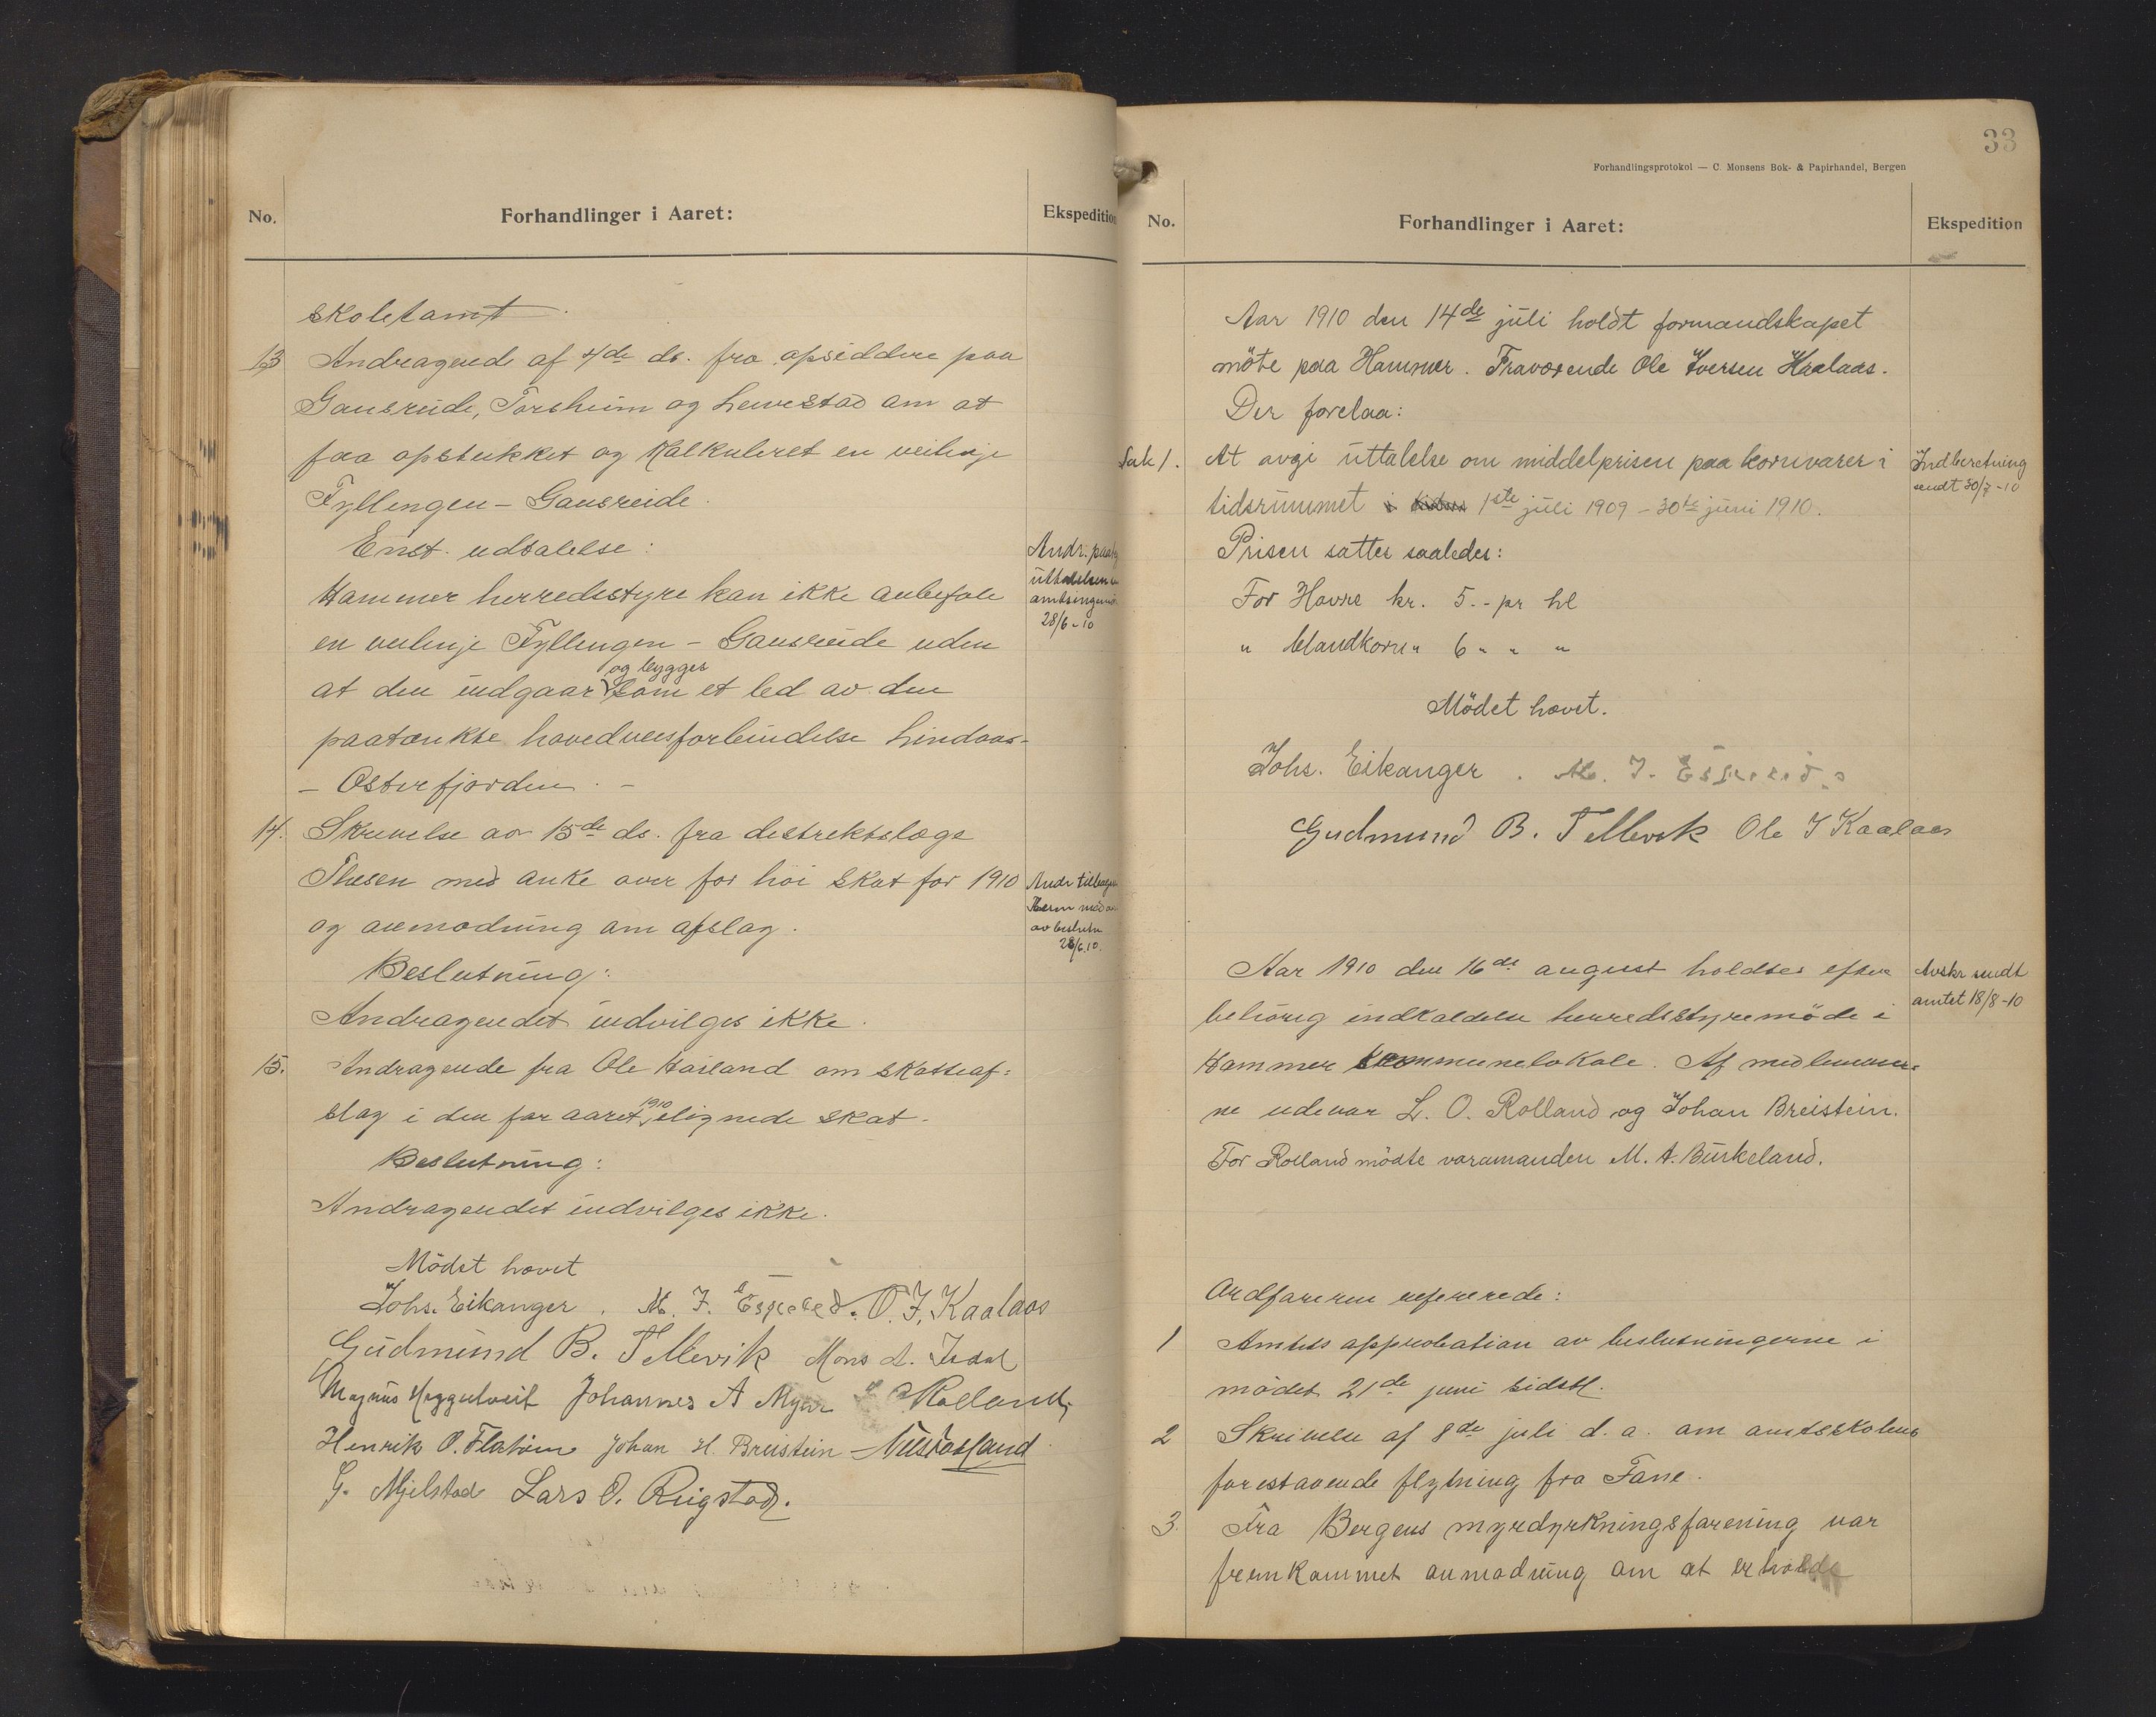 No.
Forhandlinger i Aaret:
Ekspedition
skoletomt.
13 Andragende af 4de ds. fra opsiddere paa
Gausreide, Torsheim og Lervestad om at
faa opstukket og kalkuleret en veilinje
Fyllingen – Gausreide.
Enst. udtalelse:
Hammer herredsstyre kan ikke anbefale
en veilinje Fyllingen – Gausreide uden
og bygges
at den indgaar som et led av den
paatænkte hovedveisforbindelse Lindaas-
– Osterfjorden. –
Andr. paateg
uttalelsen
amtsingeniør
28/6-10
14. Skrivelse av 15de ds. fra distriktslæge
Thesen med anke over for höi skat for 1910
og anmodning om afslag.
Beslutning:
Andragendet indvilges ikke.
Andr tilbage
av beslutn
28/6.10.
15. Andragende fra Ole Hosland om skatteaf=
1910
slag i den for aaret elignede skat.
Beslutning:
Andragendet indvilges ikke.
Mödet hævet
Johs. Eikanger. M. J. Espeled. O. I. Kaalaas
Gudmund B. Tellevik Mons A. Isdal
Magnus Heggelveit Johannes A Myhr L O Rolland
Henrik O. Flatöen Johan H. Breistein Nils Hosland
G. Mjelstad Lars O. Rügstad.
33
Forhandlingsprotokol — C. Monsens Bok- & Papirhandel, Bergen
No.
Forhandlinger i Aaret:
Ekspedition
Aar 1910 den 14de juli holdt formandskapet
möte paa Hammer. Fraværende Ole Iversen Kaalaas.
Der forelaa:
Sak 1. At avgi uttalelse om middelprisen paa kornvarer i
tidsrummet i 1ste juli 1909 – 30te juni 1910.
Indberetning
sendt 30/7-10
Prisen sattes saaledes:
For Havre kr. 5.- pr hl
" blandkorn " 6 " " "
Mödet hævet.
Johs. Eikanger. M. J. Espeled.
Gudmund B. Tellevik Ole I Kaalaas
Aar 1910 den 16de august holdtes efter
behörig indkaldelse herredsstyremöde i
Hammer kommunelokale. Af medlemmer=
ne udevar L. O. Rolland og Johan Breistein.
For Rolland mödte varamanden M. A. Burkeland.
Avskr sendt
amtet 18/8-10
Ordföreren refererede:
1 Amtets approbation av beslutningerne i
mödet 21de juni sidstl.
2 Skrivelse af 8de juli d. a. om amtsskolens
forestaaende flytning fra Fane.
3. Fra Bergens myrdyrkningsforening var
fremkommet anmodning om at erholde